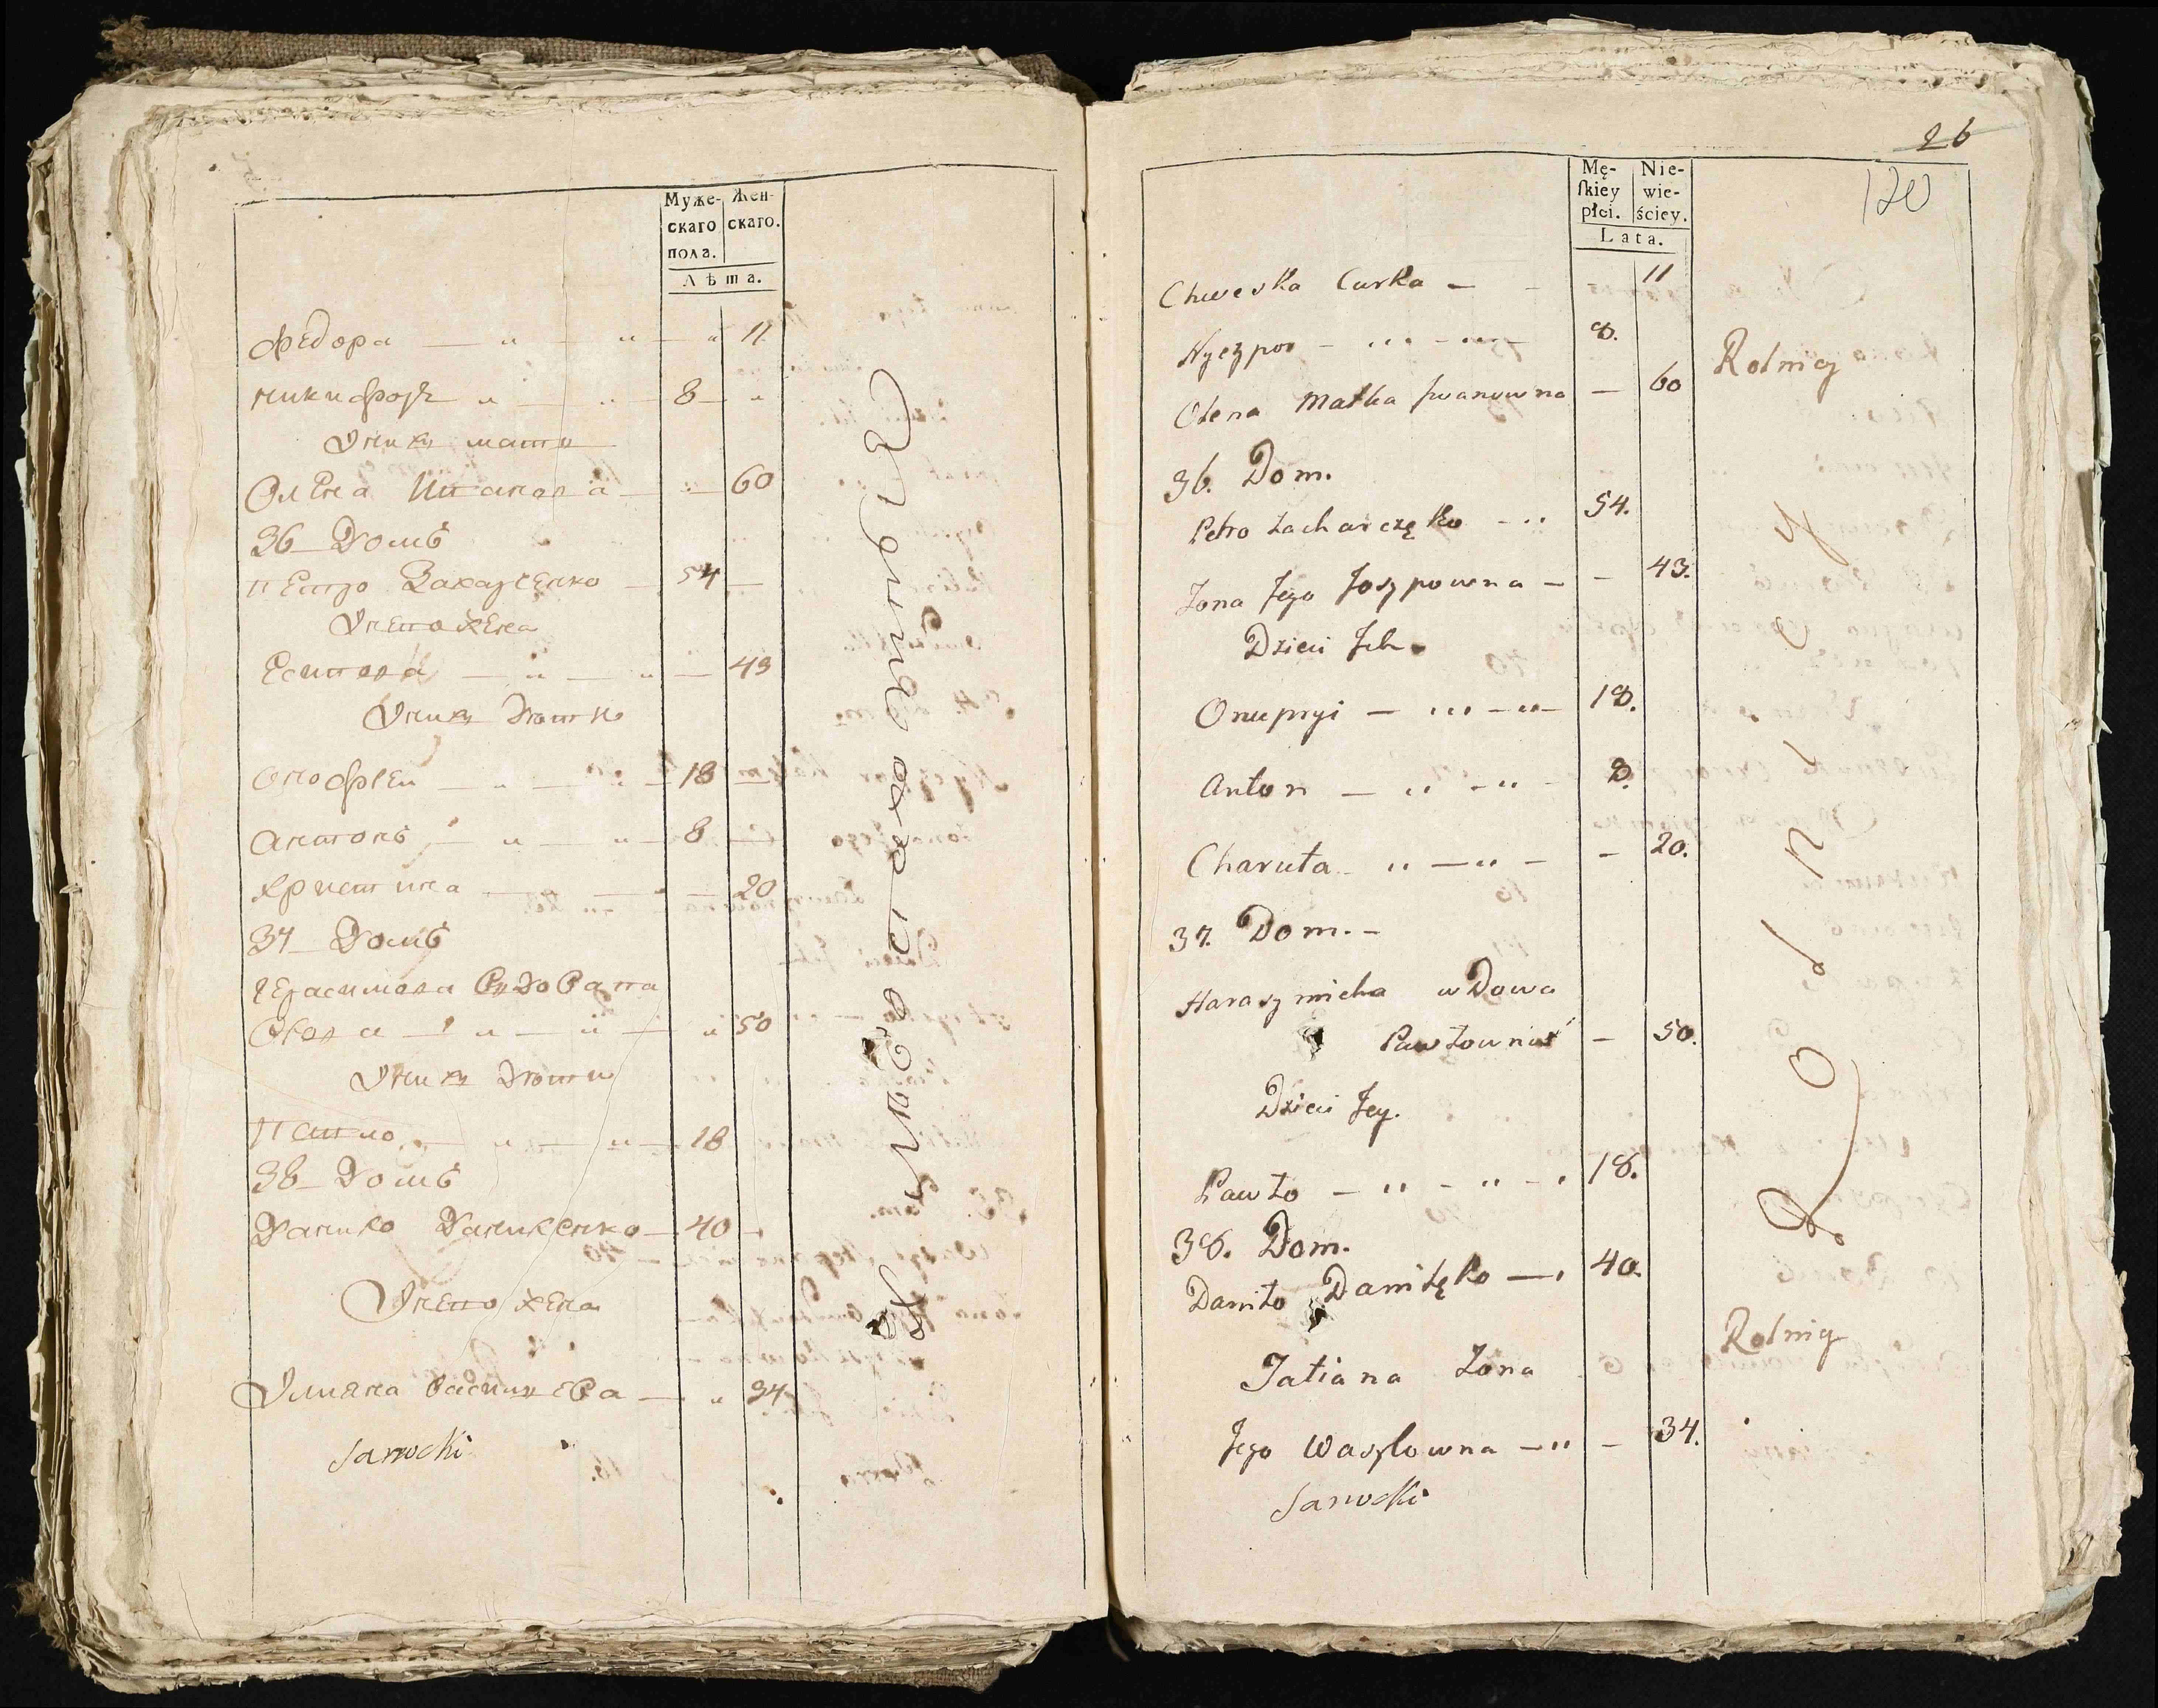 Муже-
скаго
пола.
Жен-
скаго.
Лѣта.
Федора — " — " — " 11
никифоръ " — " — 8 — "
Уних мати
Олена Иванова — " — 60
36 Домъ
петро Захарченко — 54 —
Унего жена
Есипова — " — " — 43
Уних дѣти
Онофреи — " — " — 18 —
Антонъ — " — " — 8
Христина — — — 20
37 Домъ
Герасимова вдова па
влова — " — " — " 50
Уних дѣти
Павло — " — " — 18
38 Домъ
Данило Даниленко — 40 —
Унего жена
Улияна василева — " 34
Sarnocki
26
120
Mę-
ſkiey
płci.
Nie-
wie-
ściey.
Lata.
Chweska Curka — - 11
Nyczpor - ... - ... 8.
Rolnicy
Olena Matka Iwanowna — 60
36. Dom.
Petro Zacharczęko - .. 54.
Zona Jego Joszpowna - - 43.
Dzieci Ich
Onupryi — ... — .. — 18.
Anton — .. - .. - 8.
Charuta .. — .. - - 20.
37. Dom. -
Haraszmicha wDowa
Pawłowna - 50.
Dzieci Jey.
Pawło — .. - .. - . 18.
38. Dom.
Daniło Daniłęko — . 40.
Rolnicy
Tatiana Zona
Jego Waszlowna — .. - 34.
Sarnocki